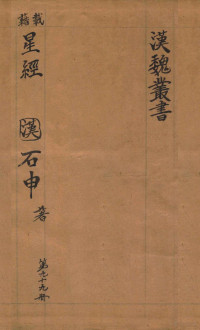 漢魏叢書
星經
漢
石申
著
第九十九册